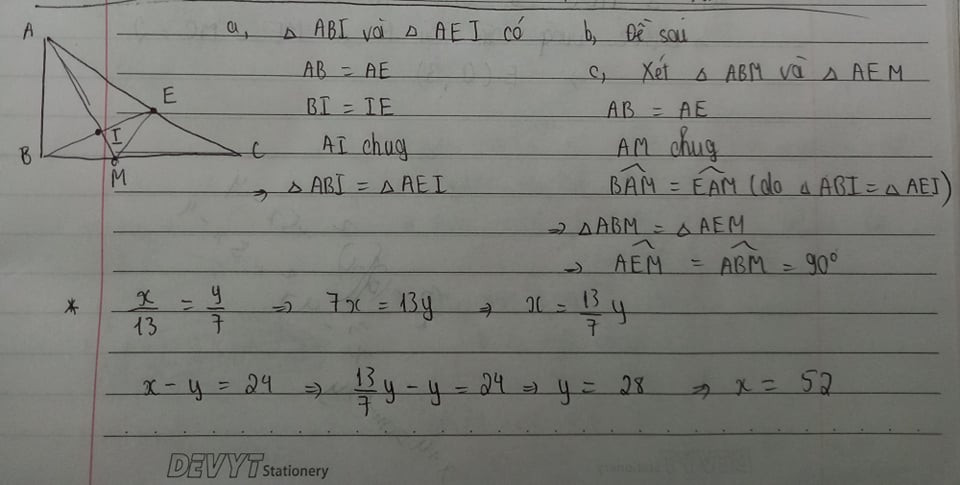 A
B
C
E
I
M
a, △ ABI và △ AEI có
AB = AE
BI = IE
AI chug
⇒ △ ABI = △ AEI
b, Đề sai
c, Xét △ ABM và △ AEM
AB = AE
AM chug
\widehat{BAM} = \widehat{EAM} (do △ ABI = △ AEI)
⇒ △ABM = △ AEM
⇒ \widehat{AEM} = \widehat{ABM} = 90°
* x/13 = y/7 ⇒ 7x = 13y ⇒ x = 13/7 y
x - y = 24 ⇒ 13/7 y - y = 24 ⇒ y = 28 ⇒ x = 52
DEVYT Stationery